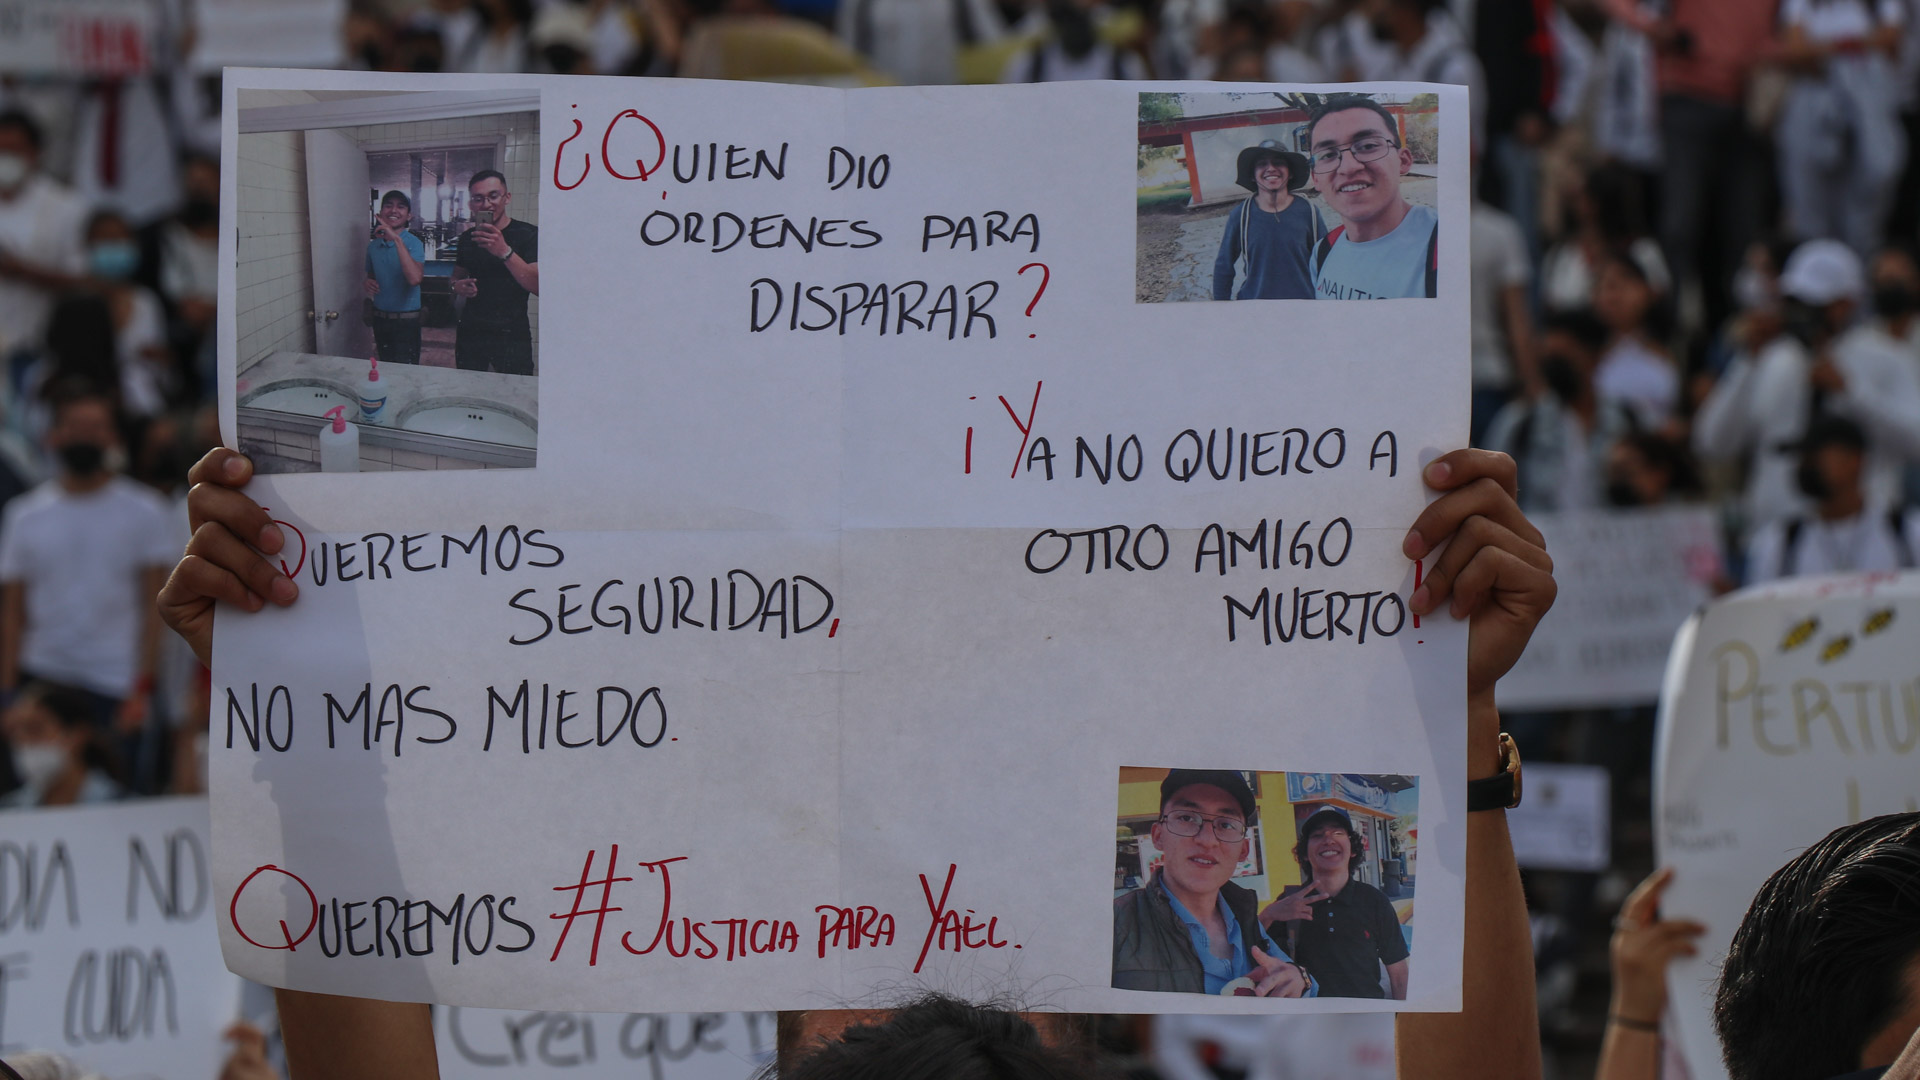 ¿QUIEN DIO
ORDENES PARA
DISPARAR?
¡YA NO QUIERO A
OTRO AMIGO
MUERTO!
QUEREMOS
SEGURIDAD,
NO MAS MIEDO.
QUEREMOS #JUSTICIA PARA YAEL.
NAUTIC
DIA NO
E CUIDA
Creí que
PERTU